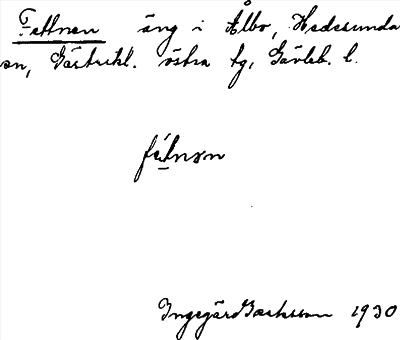 Fettnan äng i Ålbo, Hedesunda
sn, Gästrikl. östra tg, Gävleb. l.
fétnan
Ingegärd Backsson 1930